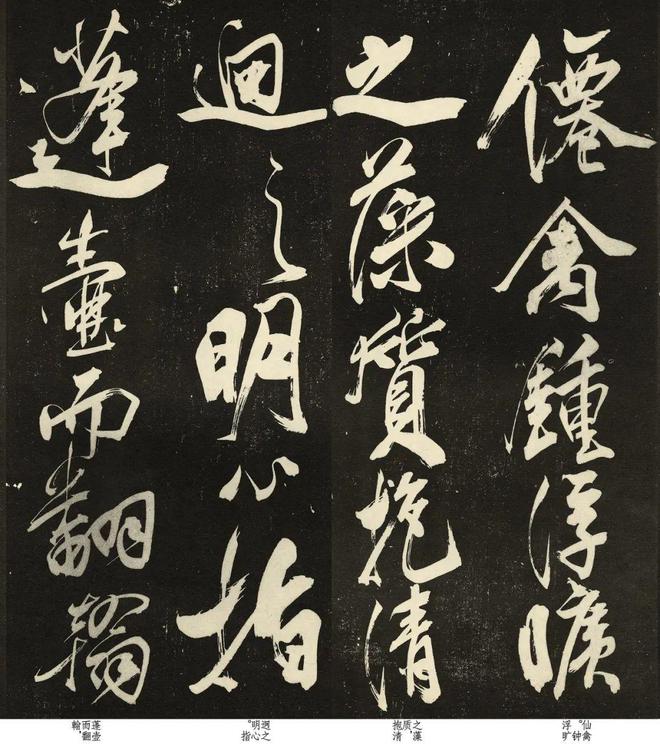 僊禽鍾浮曠
之藻質抱清
迥之明心指
蓬壺而翻翰
仙禽。钟浮旷
之藻质，抱清
迥之明心。指
蓬壶而翻翰，